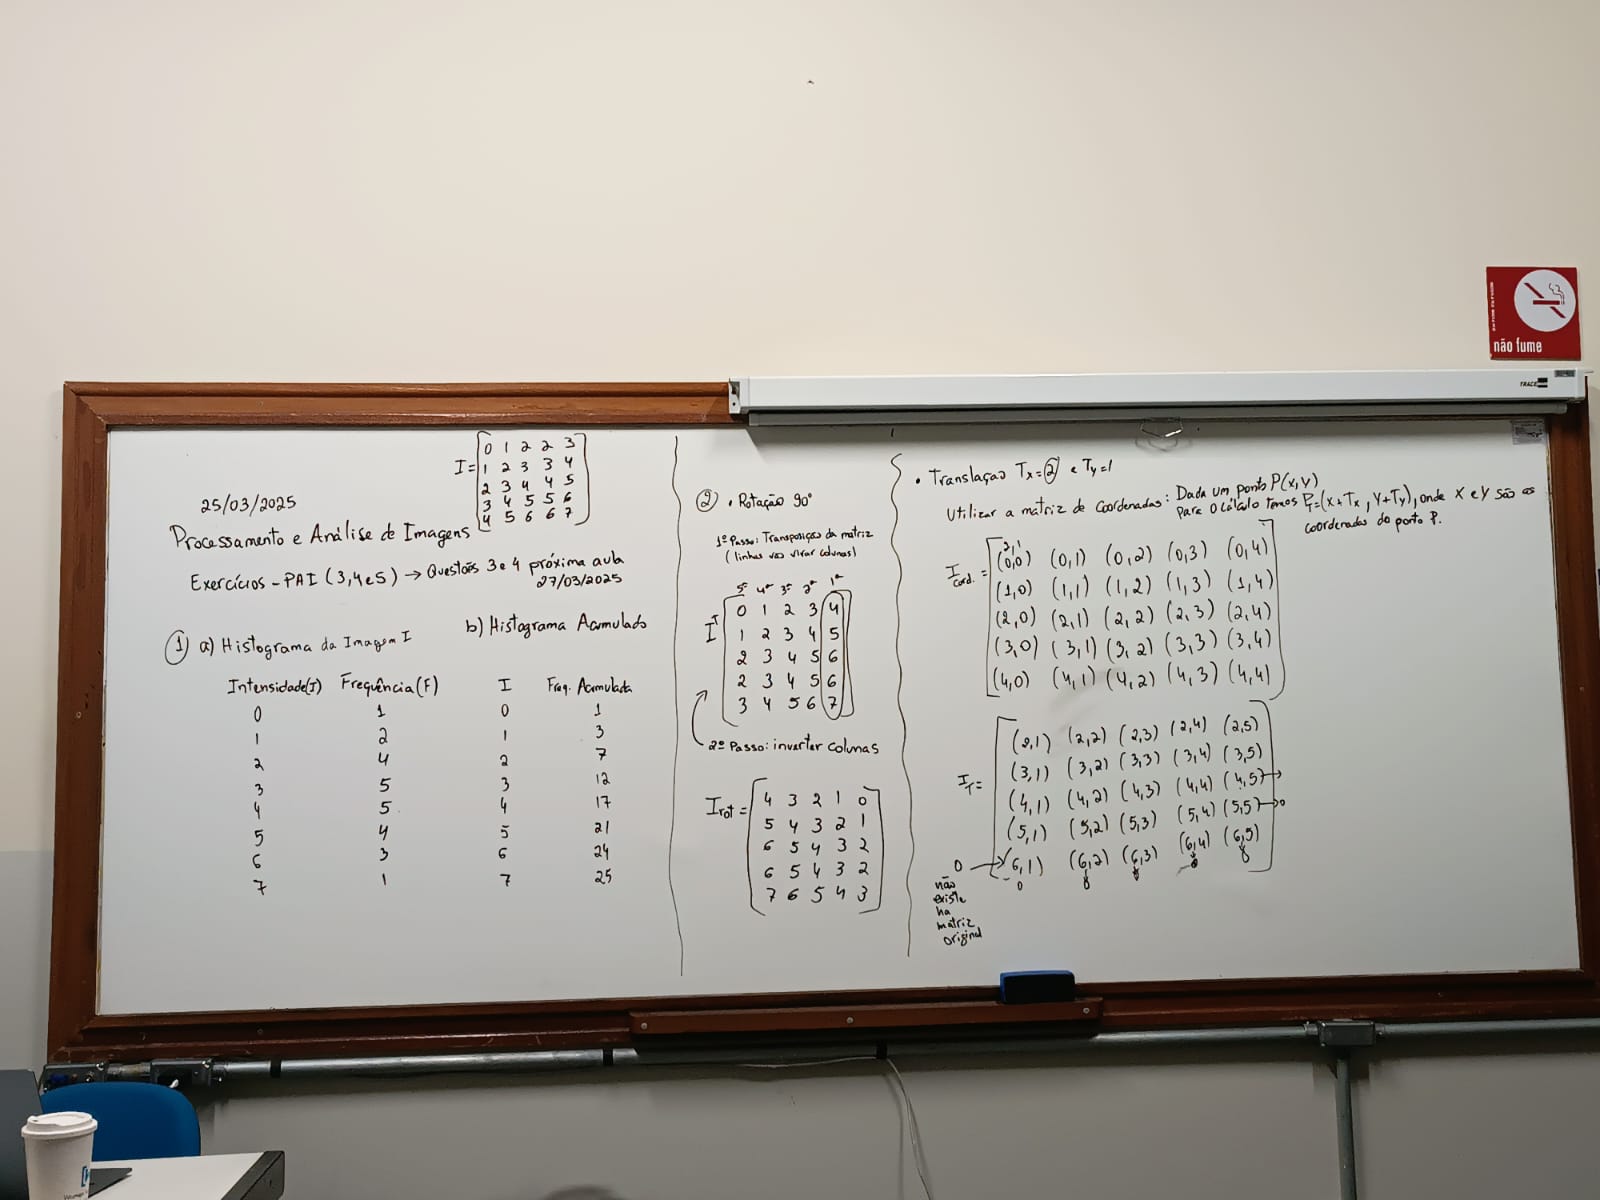 não fume
TRACE
I = 0 1 2 2 3
1 2 3 3 4
2 3 4 4 5
3 4 5 5 6
4 5 6 6 7
25/03/2025
Processamento e Análise de Imagens
Exercícios - PAI (3,4 e 5) → Questões 3 e 4 próxima aula
27/03/2025
① a) Histograma da Imagem I
Intensidade(I) Frequência(F)
0 1
1 2
2 4
3 5
4 5
5 4
6 3
7 1
b) Histograma Acumulado
I Freq. Acumulada
0 1
1 3
2 7
3 12
4 17
5 21
6 24
7 25
② • Rotação 90°
1º Passo: Transposição da matriz
(linhas vão virar colunas)
5ª 4ª 3ª 2ª 1ª
Iᵀ 0 1 2 3 4
1 2 3 4 5
2 3 4 5 6
2 3 4 5 6
3 4 5 6 7
2º Passo: inverter colunas
Irot = 4 3 2 1 0
5 4 3 2 1
6 5 4 3 2
6 5 4 3 2
7 6 5 4 3
• Translação Tx=2 e Ty=1
Utilizar a matriz de Coordenadas: Dada um ponto P(x,y)
para o cálculo temos PT=(x+Tx, y+Ty), onde x e y são as
coordenadas do ponto P.
2,1
Icord. = (0,0) (0,1) (0,2) (0,3) (0,4)
(1,0) (1,1) (1,2) (1,3) (1,4)
(2,0) (2,1) (2,2) (2,3) (2,4)
(3,0) (3,1) (3,2) (3,3) (3,4)
(4,0) (4,1) (4,2) (4,3) (4,4)
IT = (2,1) (2,2) (2,3) (2,4) (2,5)
(3,1) (3,2) (3,3) (3,4) (3,5)
(4,1) (4,2) (4,3) (4,4) (4,5) →
(5,1) (5,2) (5,3) (5,4) (5,5) → 0
0 → (6,1) (6,2) (6,3) (6,4) (6,5)
0 0 0 0 0
não
existe
na
matriz
original